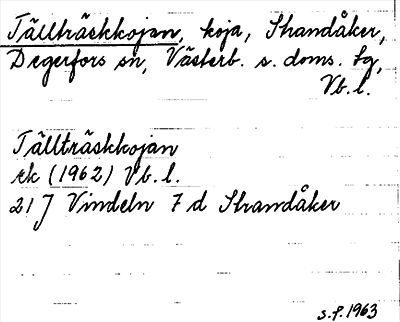 Tällträskkojan, koja, Strandåker,
Degerfors sn, Västerb. s. doms. tg,
Vb. l.
Tällträskkojan
rk (1962) Vb. l.
21 J Vindeln 7 d Strandåker
S.P. 1963